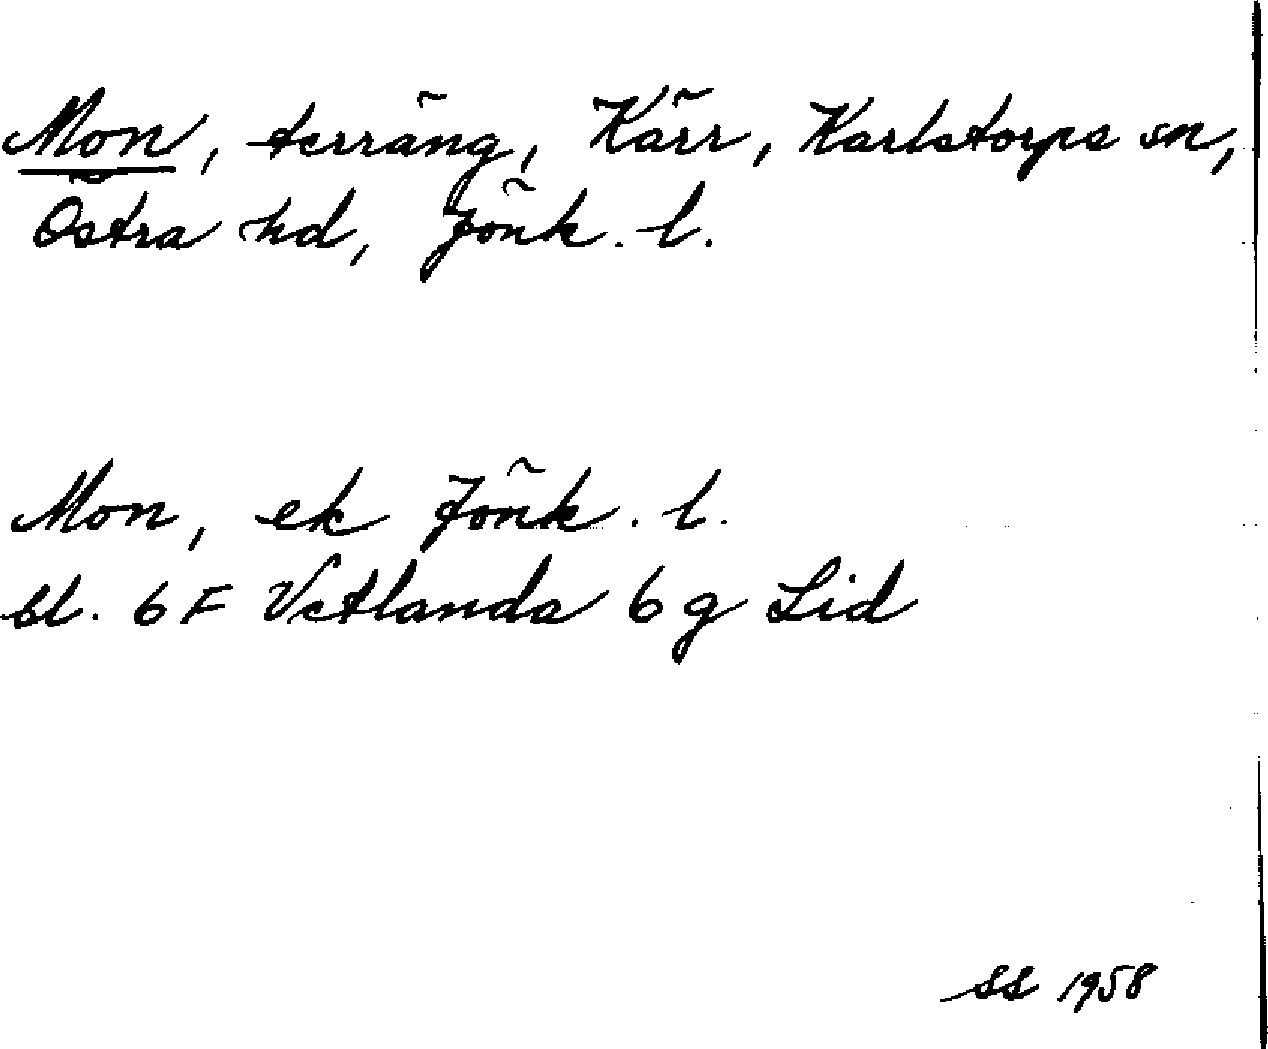 Mon, terräng, Kärr, Karlstorps sn,
Östra hd, Jönk. l.
Mon, ek Jönk. l.
bl. 6 F Vetlanda 6 g Lid
SS 1958